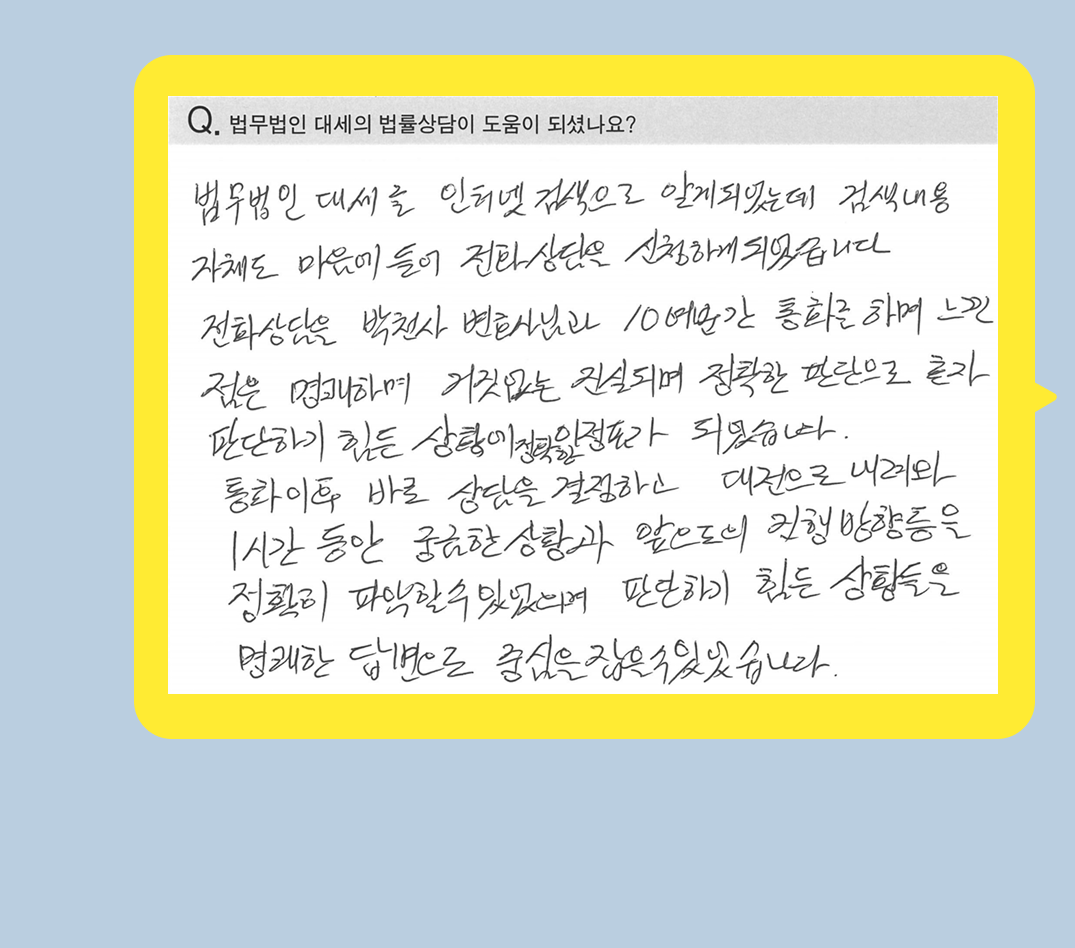 Q. 법무법인 대세의 법률상담이 도움이 되셨나요?
법무법인 대세를 인터넷 검색으로 알게되었는데 검색내용
자체도 마음에 들어 전화상담을 신청하게되었습니다
전화상담을 박천사 변호사님과 10여분간 통화를 하며 느낀
점은 명쾌하며 거짓없는 진실되며 정확한 판단으로 혼자
판단하기 힘든 상황에 정확한 정표가 되었습니다.
통화이후 바로 상담을 결정하고 대전으로 내려와
1시간 동안 궁금한 상황과 앞으로의 진행방향등을
정확히 파악할수있었으며 판단하기 힘든 상황들을
명쾌한 답변으로 중심을 잡을수있었습니다.